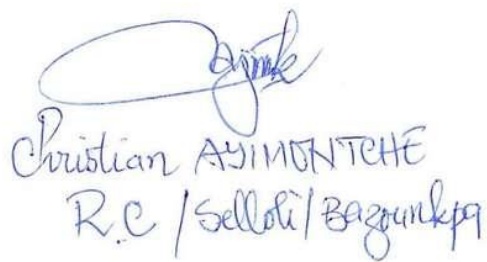 Christian AYIMONTCHE
R.C / Selloli / Bazounkpa